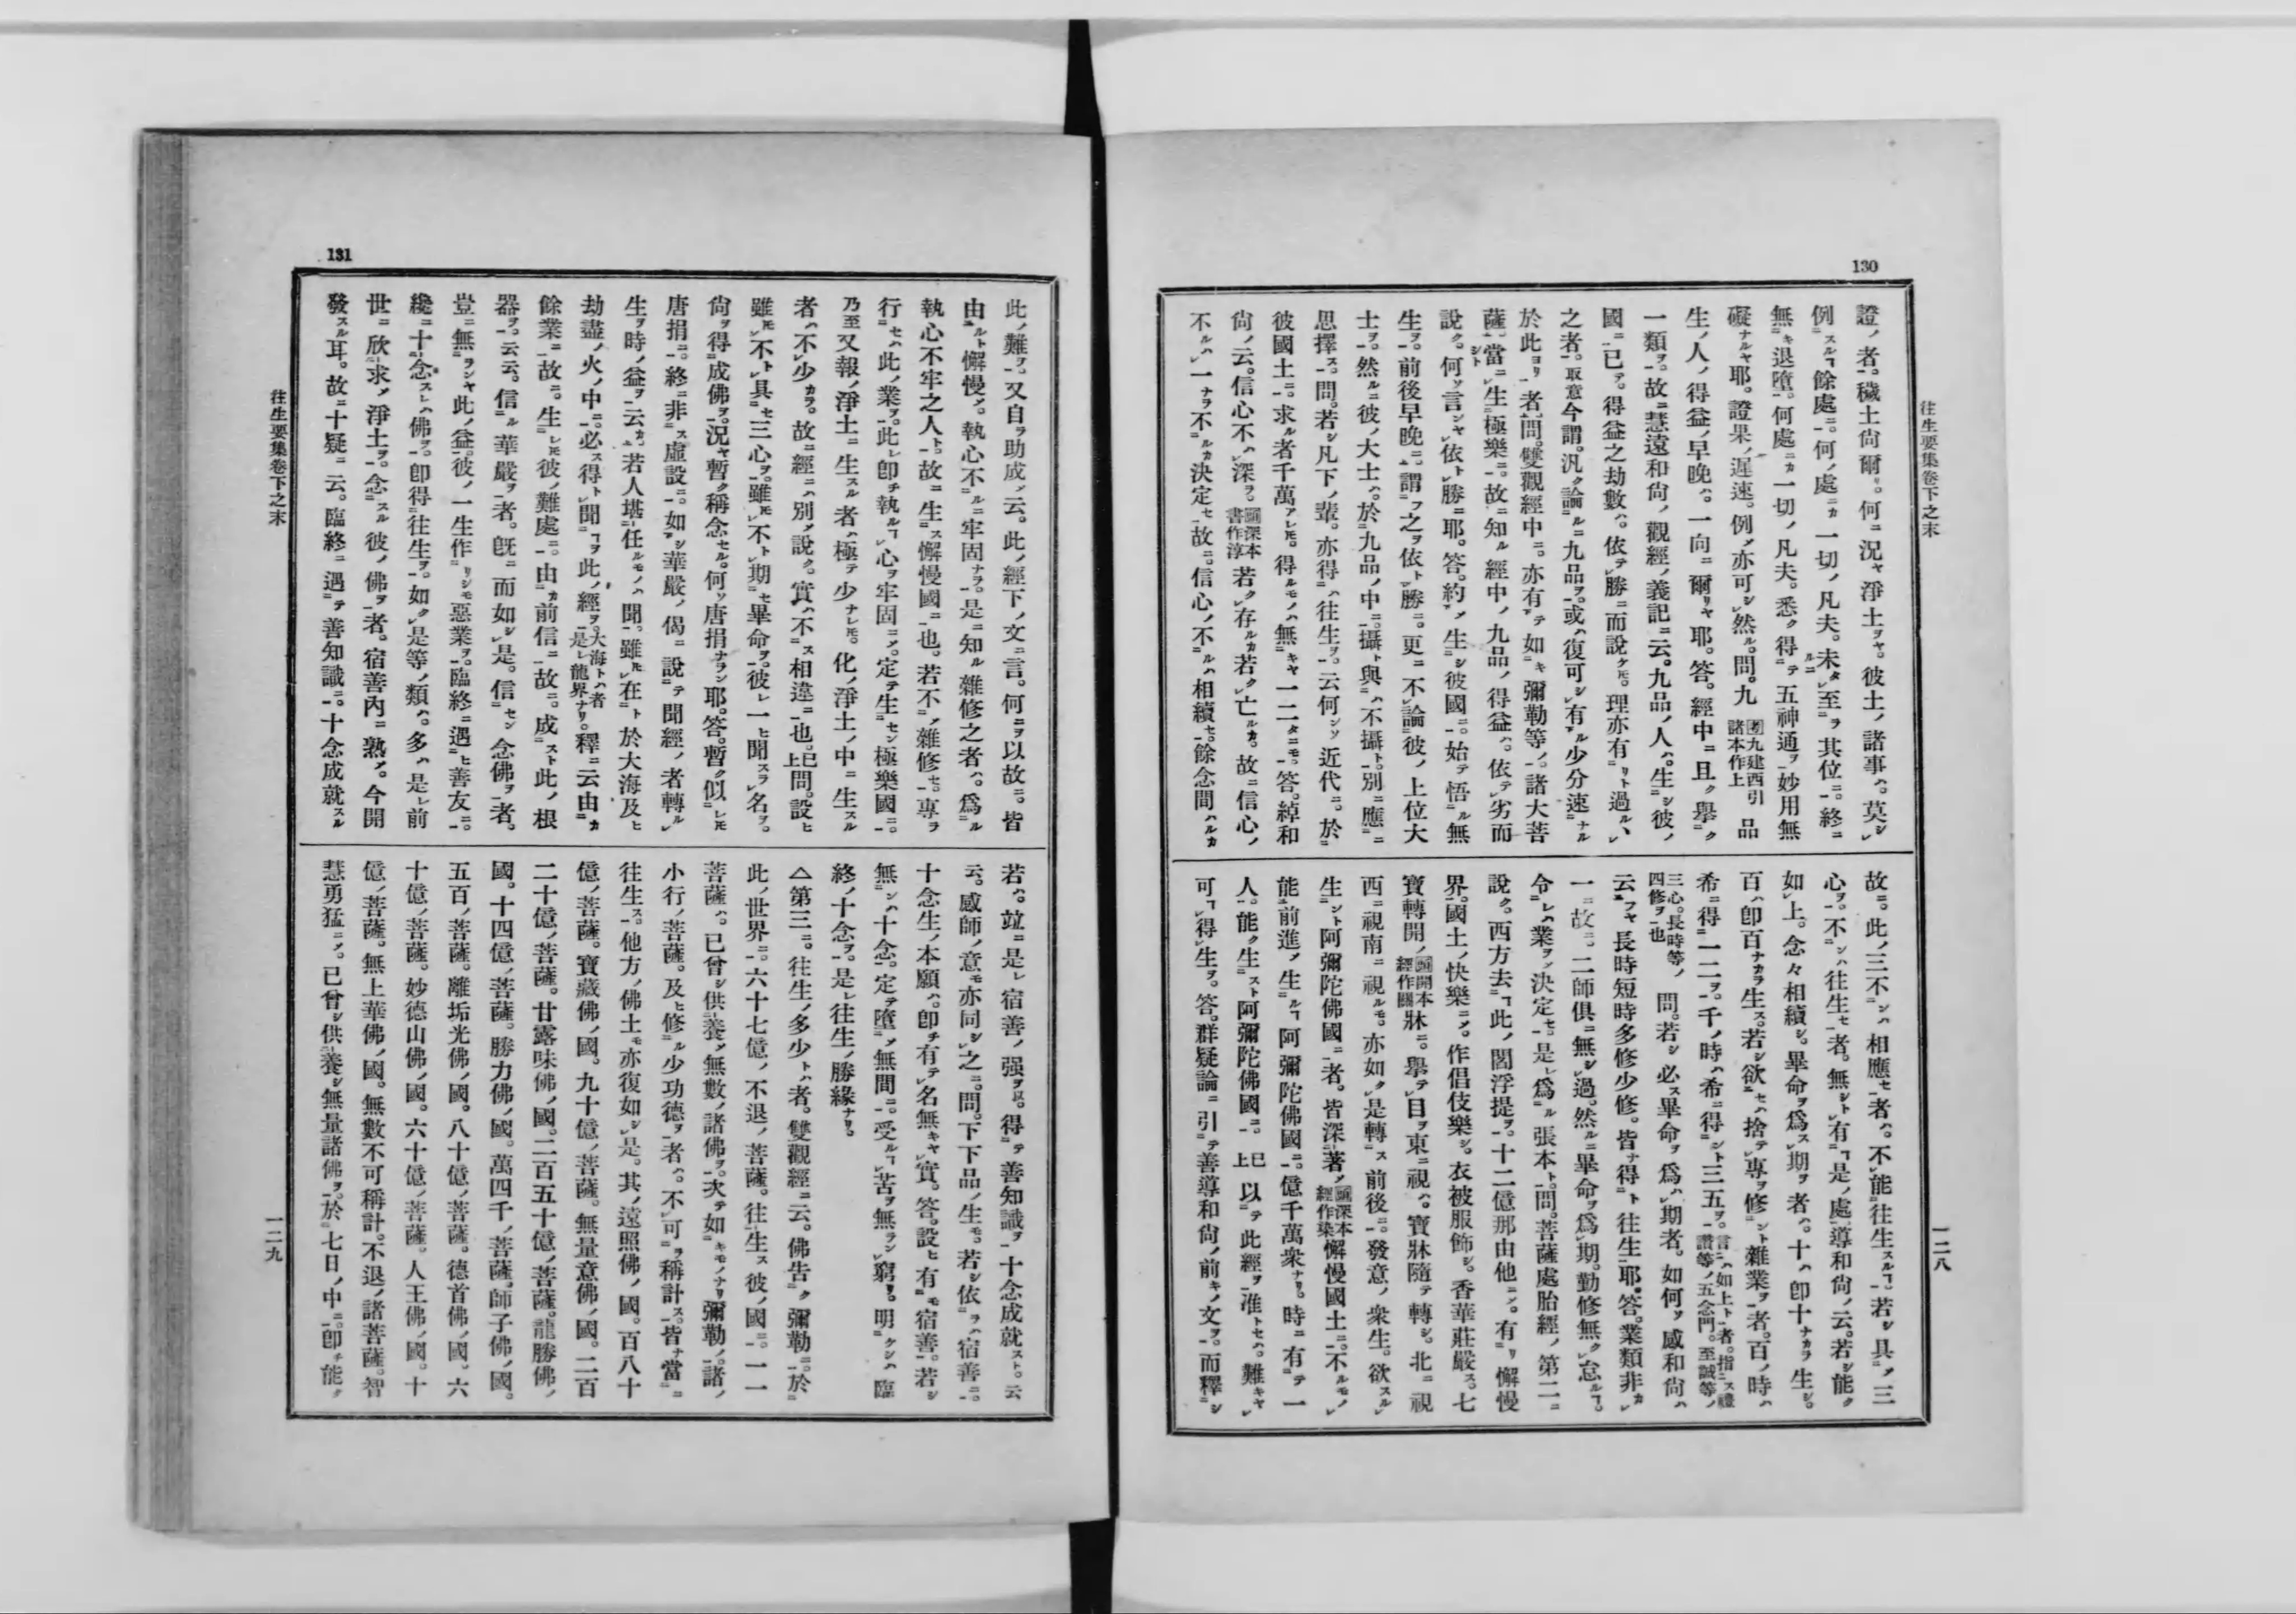 130
往生要集卷下之末
證ノ者。穢土尙爾リ。何ニ況ヤ淨土ヲヤ。彼土ノ諸事ハ。莫シレ
例スルコ餘處ニ。何ノ處ニカ一切ノ凡夫。未タルニレ至ラ其位ニ。終ニ
無キ退墮。何處ニカ一切ノ凡夫。悉ク得テ五神通ヲ妙用無
礙ナルヤ耶。證果ノ遲速。例メ亦可シレ然ル。問。九圈九建西引諸本作上品
生ノ人ノ得益ノ早晚ハ。一向ニ爾リヤ耶。答。經中ニ且ク擧ク
一類ヲ。故ニ慧遠和尙ノ觀經ノ義記ニ云。九品ノ人ハ。生シ彼ノ
國ニ已テ。得益之劫數ハ。依テレ勝ニ而說ケモ。理亦有リト過ルレ
之者。取意今謂。汎ク論ルニ九品ヲ。或ハ復可シレ有ル少分速ナル
於此ヨリ者。問。雙觀經中ニ。亦有テ如キ彌勒等ノ。諸大菩
薩。當ニシトレ生極樂ニ。故ニ知ル經中ノ九品ノ得益ハ。依テレ劣ニ而
說ク。何ソ言シヤレ依トレ勝ニ耶。答。約メ生シ彼國ニ。始テ悟ル無
生ヲ。前後早晚ニ。謂フ之ヲ依トレ勝ニ。更ニ不レ論彼ノ上位大
士ヲ。然ルニ彼ノ大士ハ。於九品ノ中ニ。攝ト與ハ不攝ト。別ニ應ニ
思擇ス。問。若シ凡下ノ輩。亦得ハ往生ヲ。云何ソ近代ニ。於
彼國土ニ。求ル者千萬アレモ。得ルモノハ無キヤ一二タニモ。答。綽和
尙ノ云。信心不ハレ深ヲ。圈深本書作淳若ク存ルカ若ク亡ルカ。故ニ信心ノ
不ルハレ一ナヲ不ルカ決定セ故ニ。信心ノ不ルハ相續セ。餘念間ハルカ
故ニ。此ノ三不シハ相應セ者ハ。不レ能往生スルコ。若シ具メ三
心ヲ。不シハ往生セ者。無シト有コ是ノ處。導和尙ノ云。若シ能ク
如レ上。念々相續シ。畢命ヲ爲スレ期ヲ者ハ。十ハ卽十ナカラ生シ。
百ハ卽百ナカラ生ス。若シ欲セハ捨テレ專ヲ修ント雜業ヲ者。百ノ時ハ
希ニ得一二ヲ。千ノ時ハ希ニ得シト三五ヲ。言ハ如上ト者。指ス禮讚等ノ五念門。至誠等ノ
三心。長時等ノ四修ヲ也問。若シ必ス畢命ヲ爲ハレ期者。如何ソ感和尙ハ
云フヤ長時短時多修少修。皆ナ得ト往生耶。答。業類非カレ
一故ニ。二師俱ニ無シレ過。然ルニ畢命ヲ爲レ期。勤修無クレ怠ルコ。
令ハレ業ヲシ決定セ。是レ爲ル張本ト。問。菩薩處胎經ノ第二ニ
說ク。西方去コ此ノ閻浮提ヲ。十二億那由他ニメ。有リ懈慢
界。國土ノ快樂ニメ。作倡伎樂シ。衣被服飾シ。香華莊嚴ス。七
寶轉開ノ圈開本經作關牀ニ。擧テレ目ヲ東ニ視ハ。寶牀隨テ轉シ。北ニ視
西ニ視南ニ視ルモ。亦如ク是轉ス前後ニ。發意ノ衆生。欲スルレ
生ント阿彌陀佛國ニ者。皆深著ノ圈深本經作染懈慢國土ニ。不ルモノレ
能前進ノ生ルコ阿彌陀佛國ニ。億千萬衆ナリ。時ニ有テ一
人。能ク生スト阿彌陀佛國ニ。已上以テ此經ヲ准トセハ。難キヤレ
可コレ得レ生ヲ。答。群疑論ニ引テ善導和尙ノ前キノ文ヲ。而釋シ
一二八
131
往生要集卷下之末
此ノ難ヲ。又自ラ助成メ云。此ノ經下ノ文ニ言。何ニヲ以故ニ。皆
由ルト懈慢メ。執心不ルニ牢固ナラ。是ニ知ル雜修之者ハ。爲ル
執心不牢之人ト。故ニ生ス懈慢國ニ也。若不ノ雜修セ。專ヲ
行セハ此ノ業ヲ。此レ卽チ執ルコレ心ヲ牢固ニメ。定テ生セン極樂國ニ。
乃至又報ノ淨土ニ生スル者ハ極テ少ナレモ。化ノ淨土ノ中ニ生スル
者ハ不レ少カラ。故ニ經ニハ別メ說ク。實ハ不ス相違ニ也。已上問。設ヒ
雖モ不トレ具セ三心ヲ。雖モ不トレ期セ畢命ヲ。彼レ一ヒ聞スラレ名ヲ。
尙ヲ得成佛ヲ。況ヤ暫ク稱念セル。何ソ唐捐ナラン耶。答。暫ク似レモ
唐捐ニ。終ニ非ス虛設ニ。如シ華嚴ノ偈ニ說テ聞經ノ者轉ルレ
生ヲ時ノ益ヲ云カ。若人堪任ルモノハ聞。雖モレ在ト於大海及ヒ
劫盡ノ火ノ中ニ。必ス得ト聞コヲ此ノ經ヲ。大海トハ者是レ龍界ナリ。釋ニ云由カ
餘業ニ故ニ。生レモ彼ノ難處ニ。由カ前信ニ故ニ。成スト此ノ根
器ヲ。云云。信ル華嚴ヲ者。旣ニ而如シレ是。信セン念佛ヲ者。
豈ニ無ランヤ此ノ益。彼ノ一生作リシモ惡業ヲ。臨終ニ遇ヒ善友ニ。
纔ニ十念スレハ佛ヲ。卽得往生ヲ。如クレ是等ノ類ハ。多ハ是レ前
世ニ欣求メ淨土ヲ。念スル彼ノ佛ヲ者。宿善內ニ熟メ。今開
發スル耳。故ニ十疑ニ云。臨終ニ遇テ善知識ニ。十念成就スル
若ハ。竝ニ是レ宿善ノ强ヲ以。得テ善知識ヲ十念成就スト。云
云。感師ノ意モ亦同シレ之ニ。問。下下品ノ生モ。若シ依ラハ宿善ニ。
十念生ノ本願ハ。卽チ有テレ名無キヤレ實。答。設ヒ有モ宿善。若シ
無シハ十念。定テ墮メ無間ニ。受ルコレ苦ヲ無ランレ窮リ。明ケシハ臨
終ノ十念ヲ。是レ往生ノ勝緣ナリ。
△第三ニ。往生ノ多少トハ者。雙觀經ニ云。佛告ク彌勒ニ。於
此ノ世界ニ。六十七億ノ不退ノ菩薩。往生ス彼ノ國ニ。一一
菩薩ハ。已曾シ供養メ無數ノ諸佛ヲ。次テ如キモノナリ彌勒ノ。諸ノ
小行ノ菩薩。及ヒ修ル少功德ヲ者ハ。不可ラ稱計ス。皆ナ當ニ
往生ス。他方ノ佛土モ亦復如シレ是。其ノ遠照佛ノ國。百八十
億ノ菩薩。寶藏佛ノ國。九十億ノ菩薩。無量意佛ノ國。二百
二十億ノ菩薩。甘露味佛ノ國。二百五十億ノ菩薩。龍勝佛ノ
國。十四億ノ菩薩。勝力佛ノ國。萬四千ノ菩薩。師子佛ノ國。
五百ノ菩薩。離垢光佛ノ國。八十億ノ菩薩。德首佛ノ國。六
十億ノ菩薩。妙德山佛ノ國。六十億ノ菩薩。人王佛ノ國。十
億ノ菩薩。無上華佛ノ國。無數不可稱計。不退ノ諸菩薩。智
慧勇猛ニメ。已曾シ供養シ無量諸佛ヲ。於七日ノ中ニ。卽チ能ク
一二九